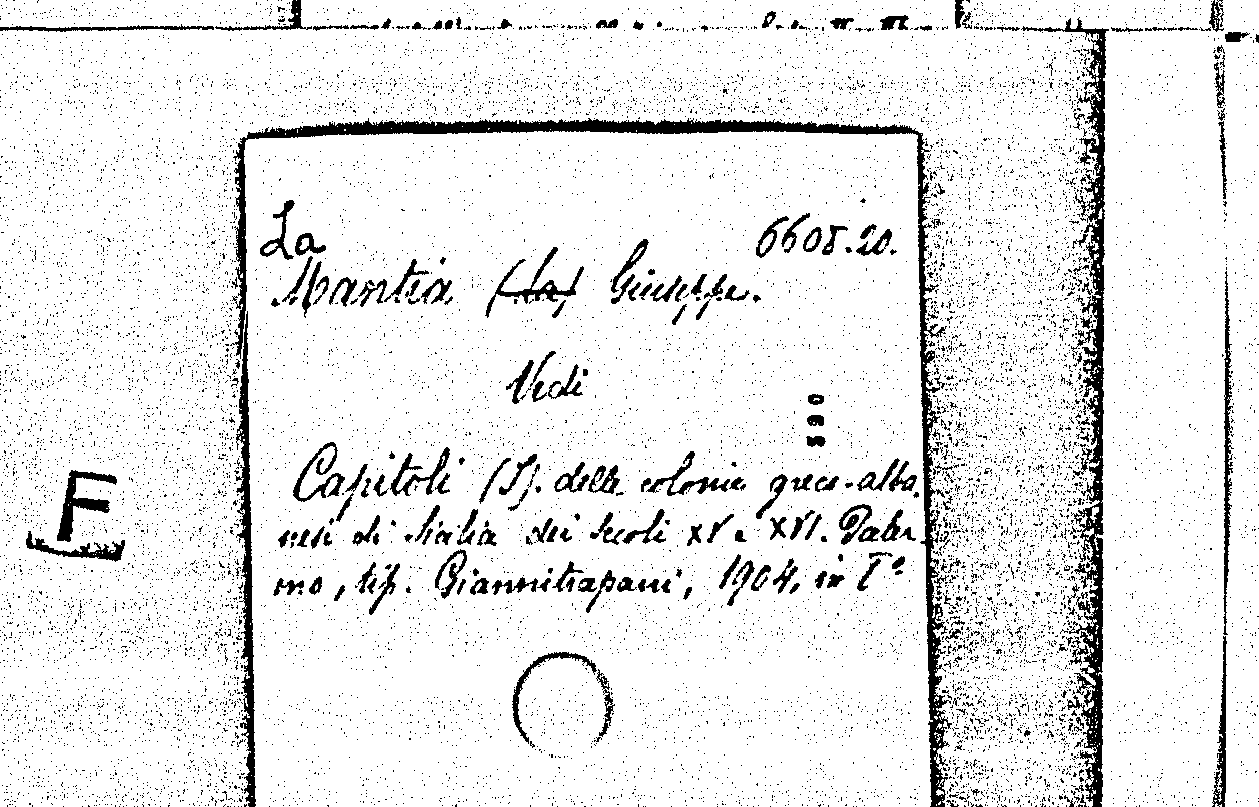 La
6608.20.
Mantia (La) Giuseppe.
Vedi
590
Capitoli (I). delle colonie greco-alba,
nesi di Sicilia dei secoli XV e XVI. Paler-
mo, tip. Giannitrapani, 1904, in 8°
F